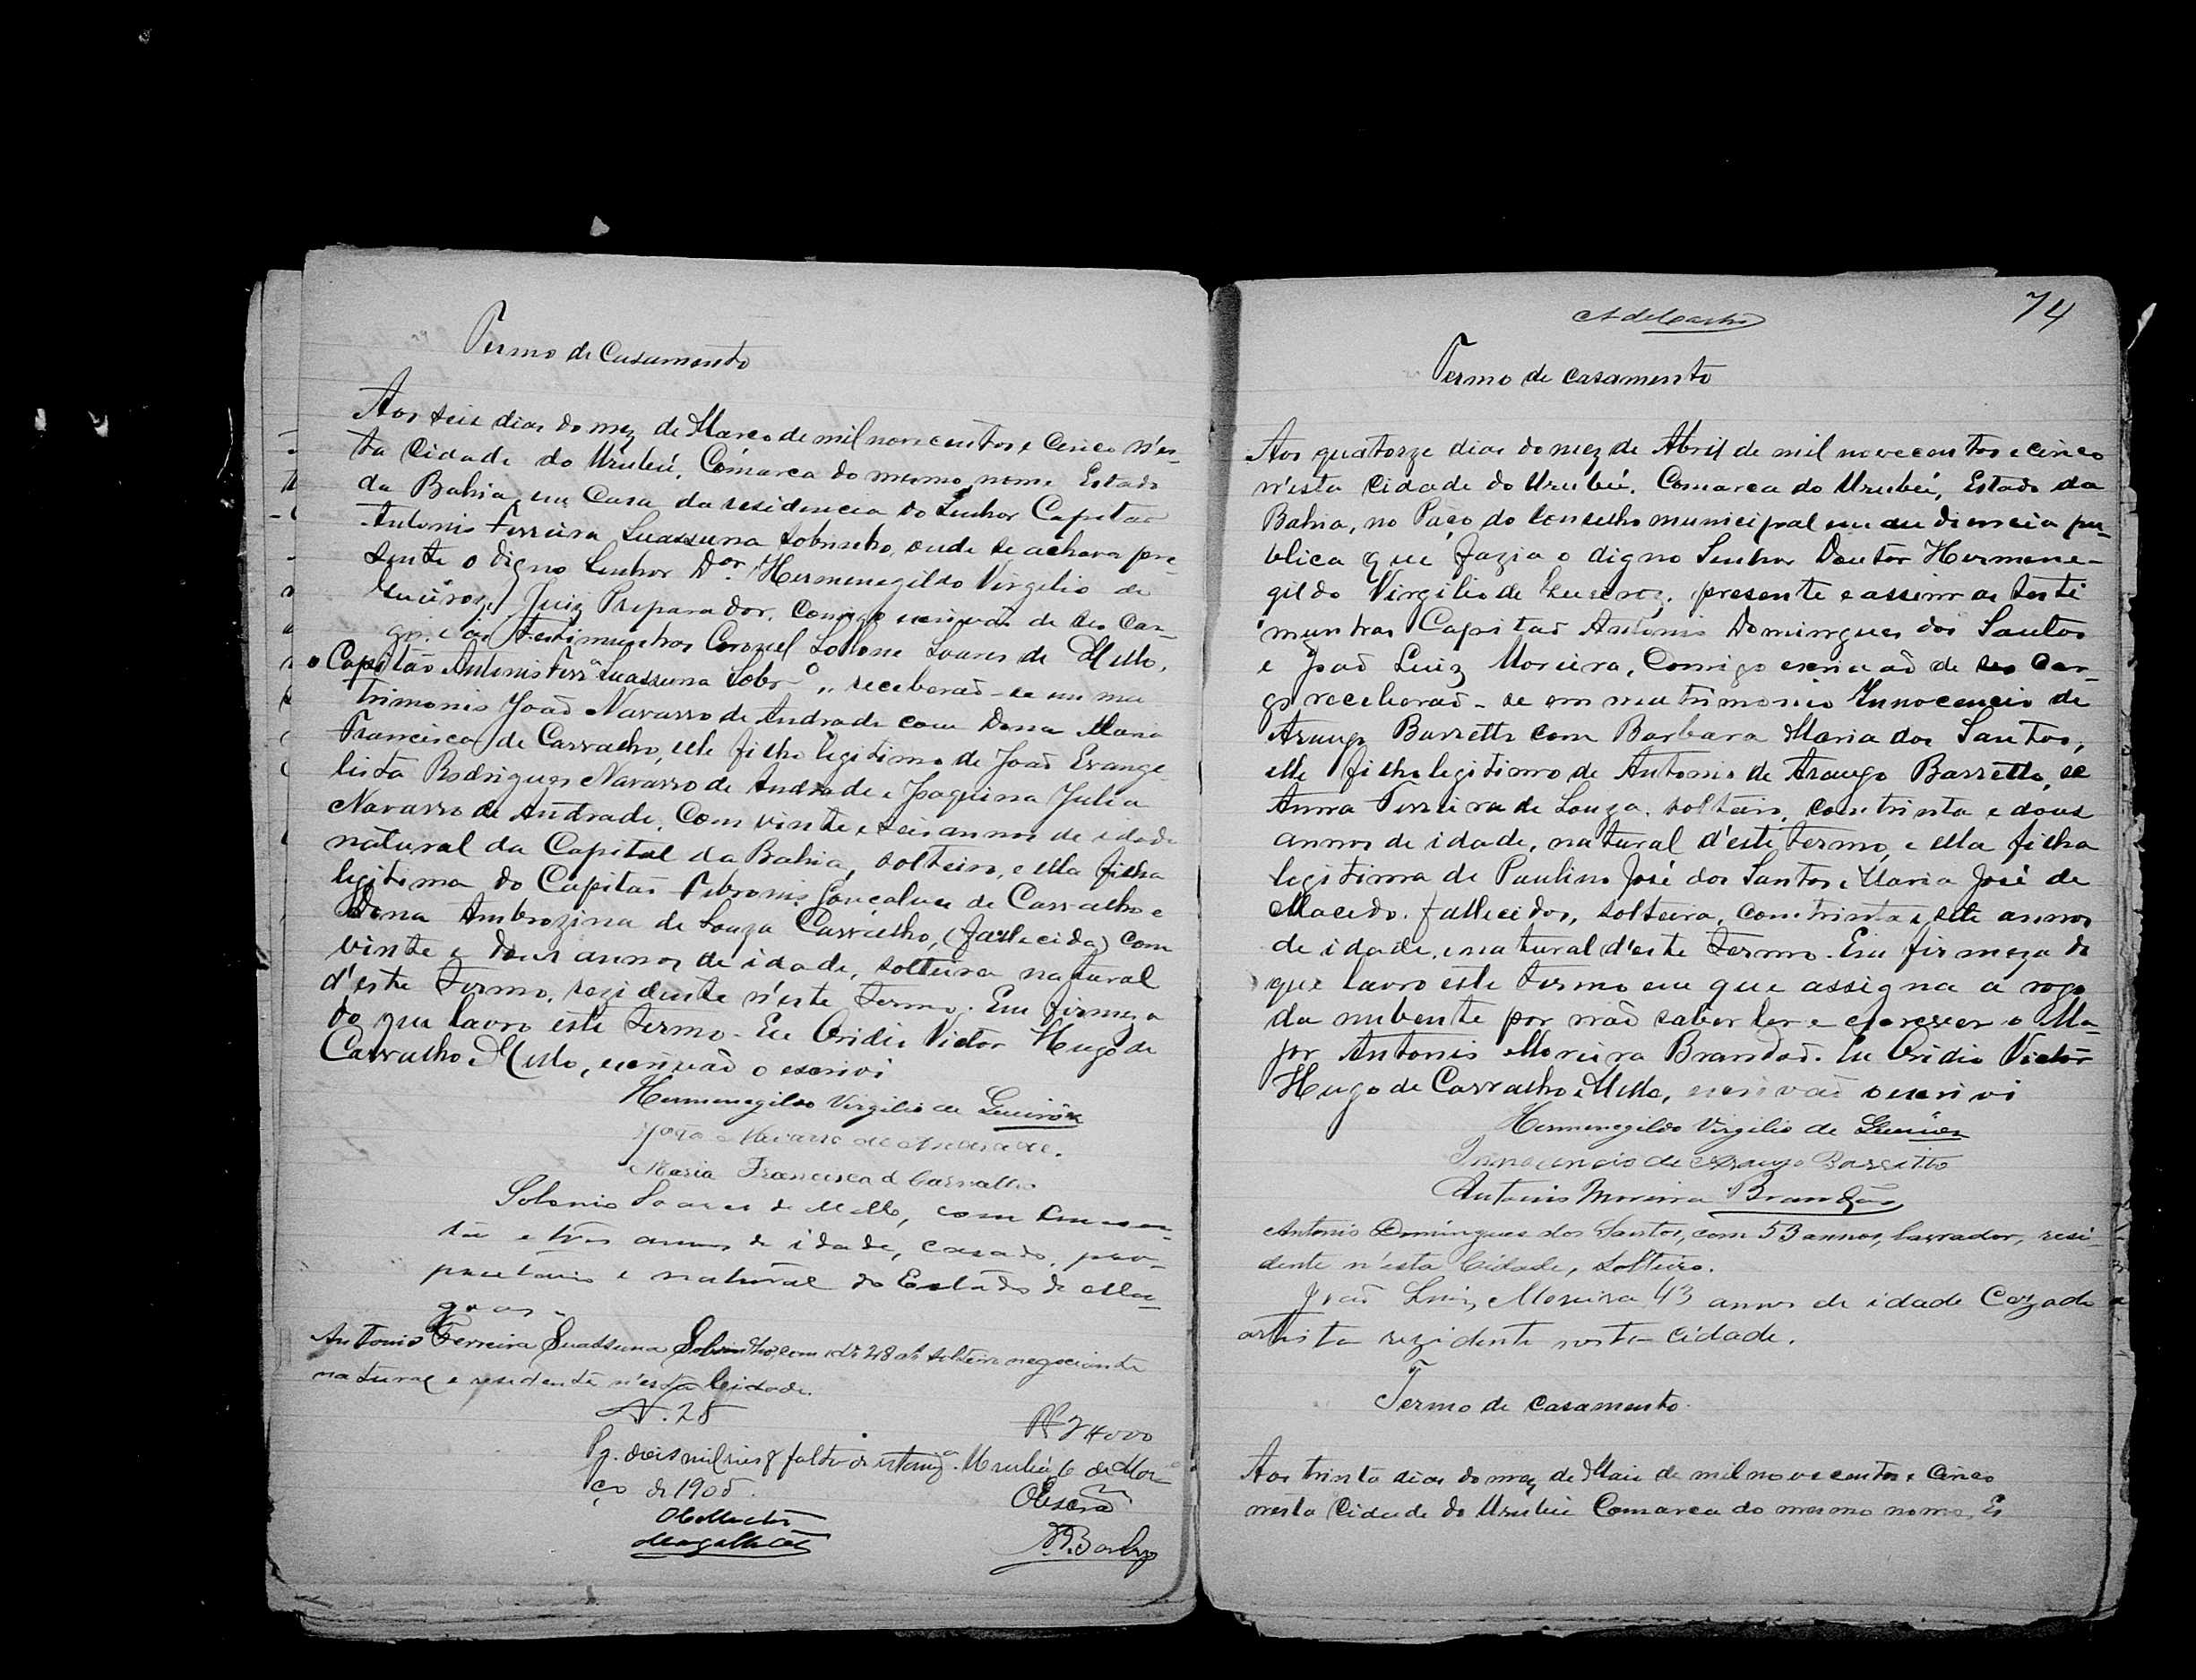 Termo de Casamento
Aos seis dias do mez de Março de mil nove centos e cinco n'es-
ta Cidade do Urubú, Comarca do mesmo nome Estado
da Bahia em Casa da residencia do Senhor Capitaõ
Antonio Ferreira Suassuna Sobrinho, onde se achava pre-
sente o digno Senhor Dor. Hermenegildo Virgilio de
Queiroz, Juiz Preparador, comigo escrivaõ de seo Car-
go, e as testimunhas Coronel Solonio Soares de Mello,
o Capitão Antonio Ferrª Suassuna Sobrº,, receberaõ-se em ma
trimonio Joaõ Navarro de Andrade com Dona Maria
Francisca de Carvalho, elle filho legitimo de Joaõ Evange-
lista Rodrigues Navarro de Andrade e Joaquina Julia
Navarro de Andrade, Com vinte e seis annos de idade
natural da Capital da Bahia, solteiro, e ella filha
legitima do Capitaõ Petronio Gonçalves de Carvalho e
Dona Ambrozina de Souza Carvalho, (fallecida) com
vinte e dous annos de idade, solteira natural
d'este Termo, rezidente n'este termo. Em firmeza
do que lavro este termo. Eu Ovidio Victor Hugo de
Carvalho e Mello, escrivaõ o escrivi
Hermenegildo Virgilio de Queirós
João Navarro de Andrade.
Maria Francisca d Carvalho
Solonio Soares de Mello, com Cincoen-
ta e tres annos de idade, casado, pro-
prietario e natural do Estado de Ala-
goas.
Antonio Ferreira Suassuna Sobrinho, com idº 28 as solteiro negociante
natural e residente n'esta Cidade.
N. 28
R$ 2#000
Pg. dois mil reis p falta de estampª. Urubú, 6 de Mar-
ço de 1905.
O Collector
Magalhães
O Escram
Aos
A de Castro
74
Termo de casamento
Aos quatorze dias do mez de Abril de mil nove centos e cinco
n'esta Cidade do Urubú, Comarca do Urubú, Estado da
Bahia, no Paço do Conselho municipal em audiencia pu-
blica que fazia o digno Senhor Doutor Hermene-
gildo Virgilio de Queiroz, presente e assim as testi
munhas Capitaõ Antonio Domingues dos Santos
e Joaõ Luiz Moreira, Comigo escrivaõ de seo Car-
go receberaõ-se em matrimonio Innocencio de
Araujo Barretto com Barbara Maria dos Santos,
elle filho legitimo de Antonio de Araujo Barretto, e
Anna Ferreira de Souza, solteiro, com trinta e dous
annos de idade, natural d'este termo, e ella filha
legitima de Paulino José dos Santos e Maria José de
Macedo, fallecidos, solteira, com trinta e sete annos
de idade, e natural d'este termo. Em firmeza do
que lavro este termo em que assigna a rogo
da nubente por naõ saber ler e escrever o Ma-
jor Antonio Moreira Brandaõ. Eu Ovidio Victor
Hugo de Carvalho e Mello, escrivaõ o escrivi
Hermenegildo Virgilio de Queirós
Innocencio de Araujo Barretto
Antonio Moreira Brandão
Antonio Domingues dos Santos, com 53 annos, lavrador, resi-
dente n'esta Cidade, solteiro.
Joaõ Luiz Moreira 43 annos de idade Cazado
artista rezidente nesta cidade.
Termo de casamento
Aos trinta dias do mez de Maio de mil nove centos e cinco
nesta Cidade do Urubú Comarca do mesmo nome, Es